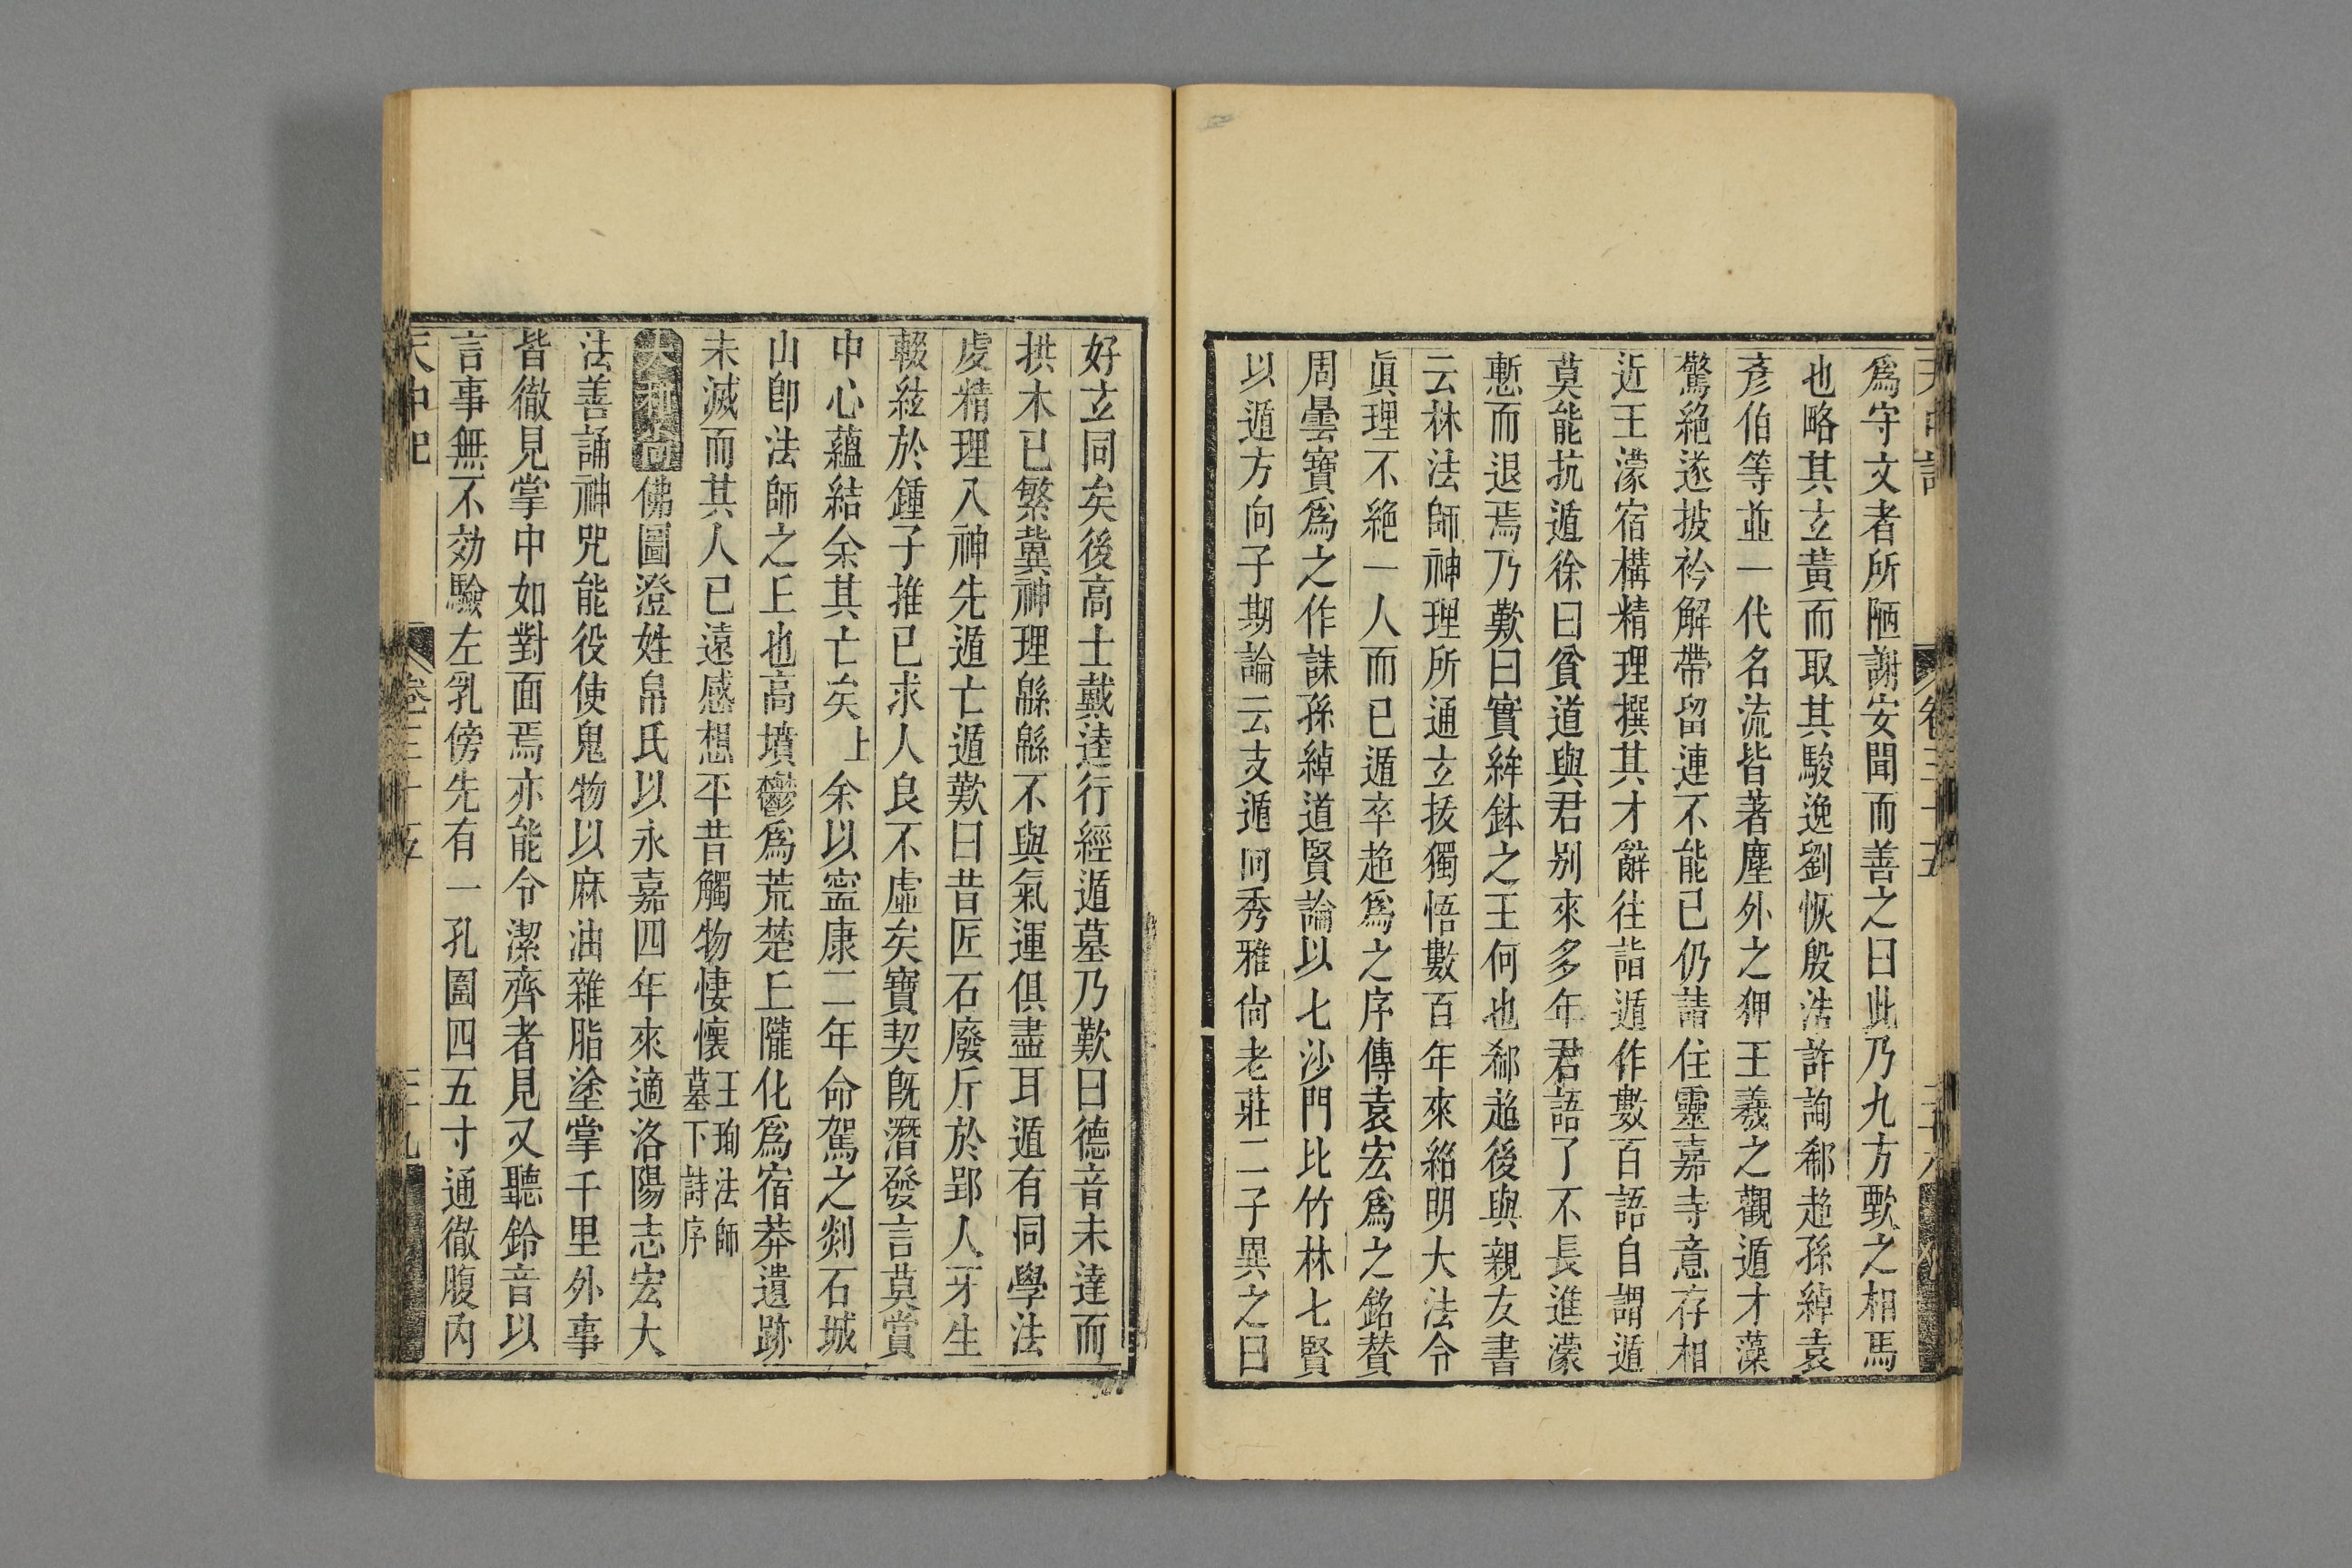 爲守文者所陋謝安聞而善之曰此乃九方歅之相馬
也略其玄黄而取其駿逸劉恢殷浩許詢郗超孫綽袁
彦伯等並一代名流皆著塵外之狎王羲之觀遁才藻
驚絶遂披衿解帶留連不能已仍請住靈嘉寺意存相
近王濛宿構精理撰其才辭往詣遁作數百語自謂遁
莫能抗遁徐曰貧道與君别來多年君語了不長進濛
慙而退焉乃歎曰實緇鉢之王何也郗超後與親友書
云林法師神理所通玄拔獨悟數百年來紹明大法令
眞理不絶一人而已遁卒超爲之序傳袁宏爲之銘賛
周曇寶爲之作誄孫綽道賢論以七沙門比竹林七賢
以遁方向子期論云支遁向秀雅尚老莊二子異之曰
好玄同矣後高士戴逵行經遁墓乃歎曰德音未達而
拱木已繁冀神理緜緜不與氣運俱盡耳遁有同學法
虔精理入神先遁亡遁歎曰昔匠石廢斤於郢人牙生
輟絃於鍾子推已求人良不虛矣寶契旣潛發言莫賞
中心蘊結余其亡矣上余以寧康二年命駕之剡石城
山卽法師之丘也高墳鬱爲荒楚丘隴化爲宿莽遺跡
未滅而其人已遠感想平昔觸物悽懷王珣法師墓下詩序
大和尚佛圖澄姓帛氏以永嘉四年來適洛陽志宏大
法善誦神咒能役使鬼物以麻油雜脂塗掌千里外事
皆徹見掌中如對面焉亦能令潔齊者見又聽鈴音以
言事無不効驗左乳傍先有一孔圍四五寸通徹腹內
天中記 卷三十五